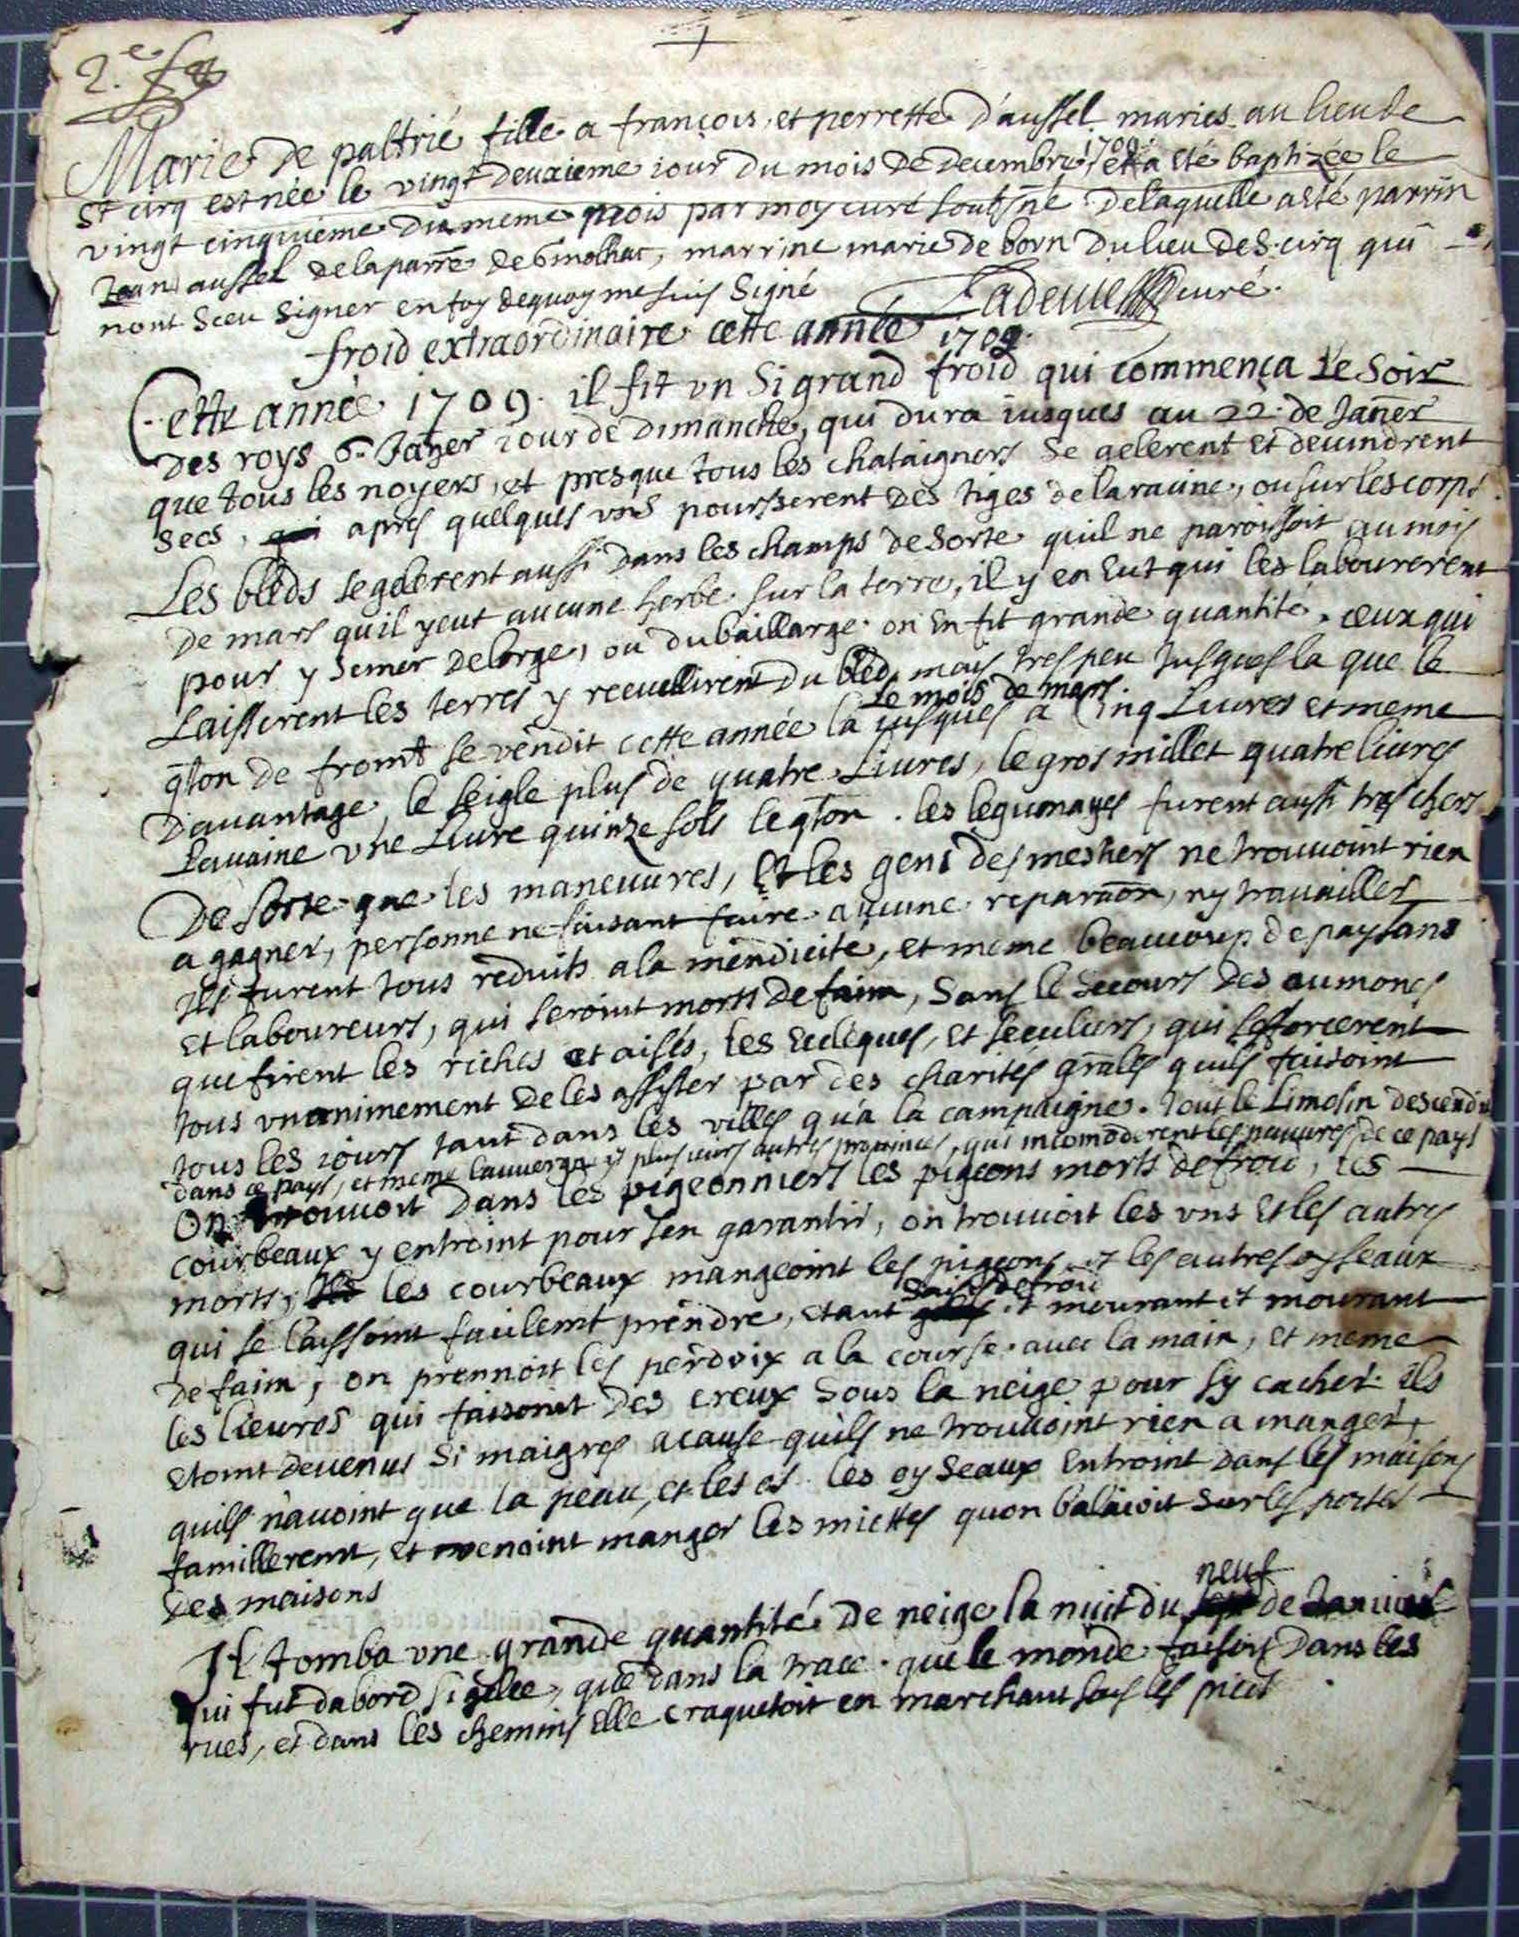 2.e f
Marie De paltrié fille a françois et perrette D'aussel maries au lieu de
St cirq est née le vingt deuxieme iour du mois de decembre 1709 et a eté baptizée le
vingt cinquieme du meme mois par moy curé soubsné De laquelle a eté parrin
Jean aussel de la parre de marrine marie de born du lieu de S. cirq qui
nont sceu signer en foy dequoy me suis signé curé.
froid extraordinaire cette année 1709.
Cette année 1709. il fit un si grand froid qui commença le soir
des roys 6. Janer iour de dimanche, qui dura iusques au 22. de Janer
que tous les noyers, et presque tous les chataigners se gelerent et devindrent
secs, apres quelques uns pousserent des tiges de la racine, ou sur les corps.
Les bleds se gelerent aussi dans les champs de sorte quil ne paroissoit au mois
de mars quil y eut aucune herbe sur la terre, il y en eut qui les labourerent
pour y semer de lorge, ou du baillarge. on en fit grande quantité. ceux qui
laisserent les terres y recueillirent du bled, mais tres peu Jusques la que le
le mois de mars
qton de fromt se vendit cette année la iusques a Cinq Livres et meme
Davantage, le seigle plus de quatre Livres, le gros millet quatre livres
Lavaine une Livre quinze sols le qton. les legumages furent aussi tres chers
De sorte que les maneuvres, Et les gens des mestiers ne trouvoint rien
a gagner, personne ne faisant faire aucune reparaon, ny travailler
Ils furent tous reduits a la mendicite, et meme beaucoup de paysans
Et laboureurs, qui seroint morts de faim, sans le secours des aumones
que firent les riches et aisés, les Ecclequs, et seculiers, qui sefforcerent
tous unanimement de les assister par des charités gralles quils faisoint
tous les iours tant dans les villes qu'a la campaigne. tout le Limosin descendit
dans ce pays, et meme lauvergne et plusieurs autres provinces, qui incomoderent les pauvres de ce pays
On trouvoit dans les pigeonniers les pigeons morts de froid, les
courbeaux y entroint pour sen garantir, on trouvoit les uns et les autres
morts, les courbeaux mangeoint les pigeons et les autres oyseaux
saisis de froid
qui se laissoint facilemt prendre, etant et mourant et mourant
de faim, on prennoit les perdrix a la course avec la main, et meme
les lievres qui faisoint des creux sous la neige pour sy cacher. ils
etoint devenus si maigres a cause quils ne trouvoint rien a manger,
quils n'avoint que la peau, et les os. les oyseaux Entroint dans les maisons
famillerent, et venoint manger les miettes quon balaioit sur les portes
des maisons
neuf
Il tomba une grande quantité de neige la nuit du sept de Janvier
qui fut dabord si gelee, que dans la trace que le monde faisoit dans les
rues, et dans les chemins Elle craquetoit en marchant sous les pieds